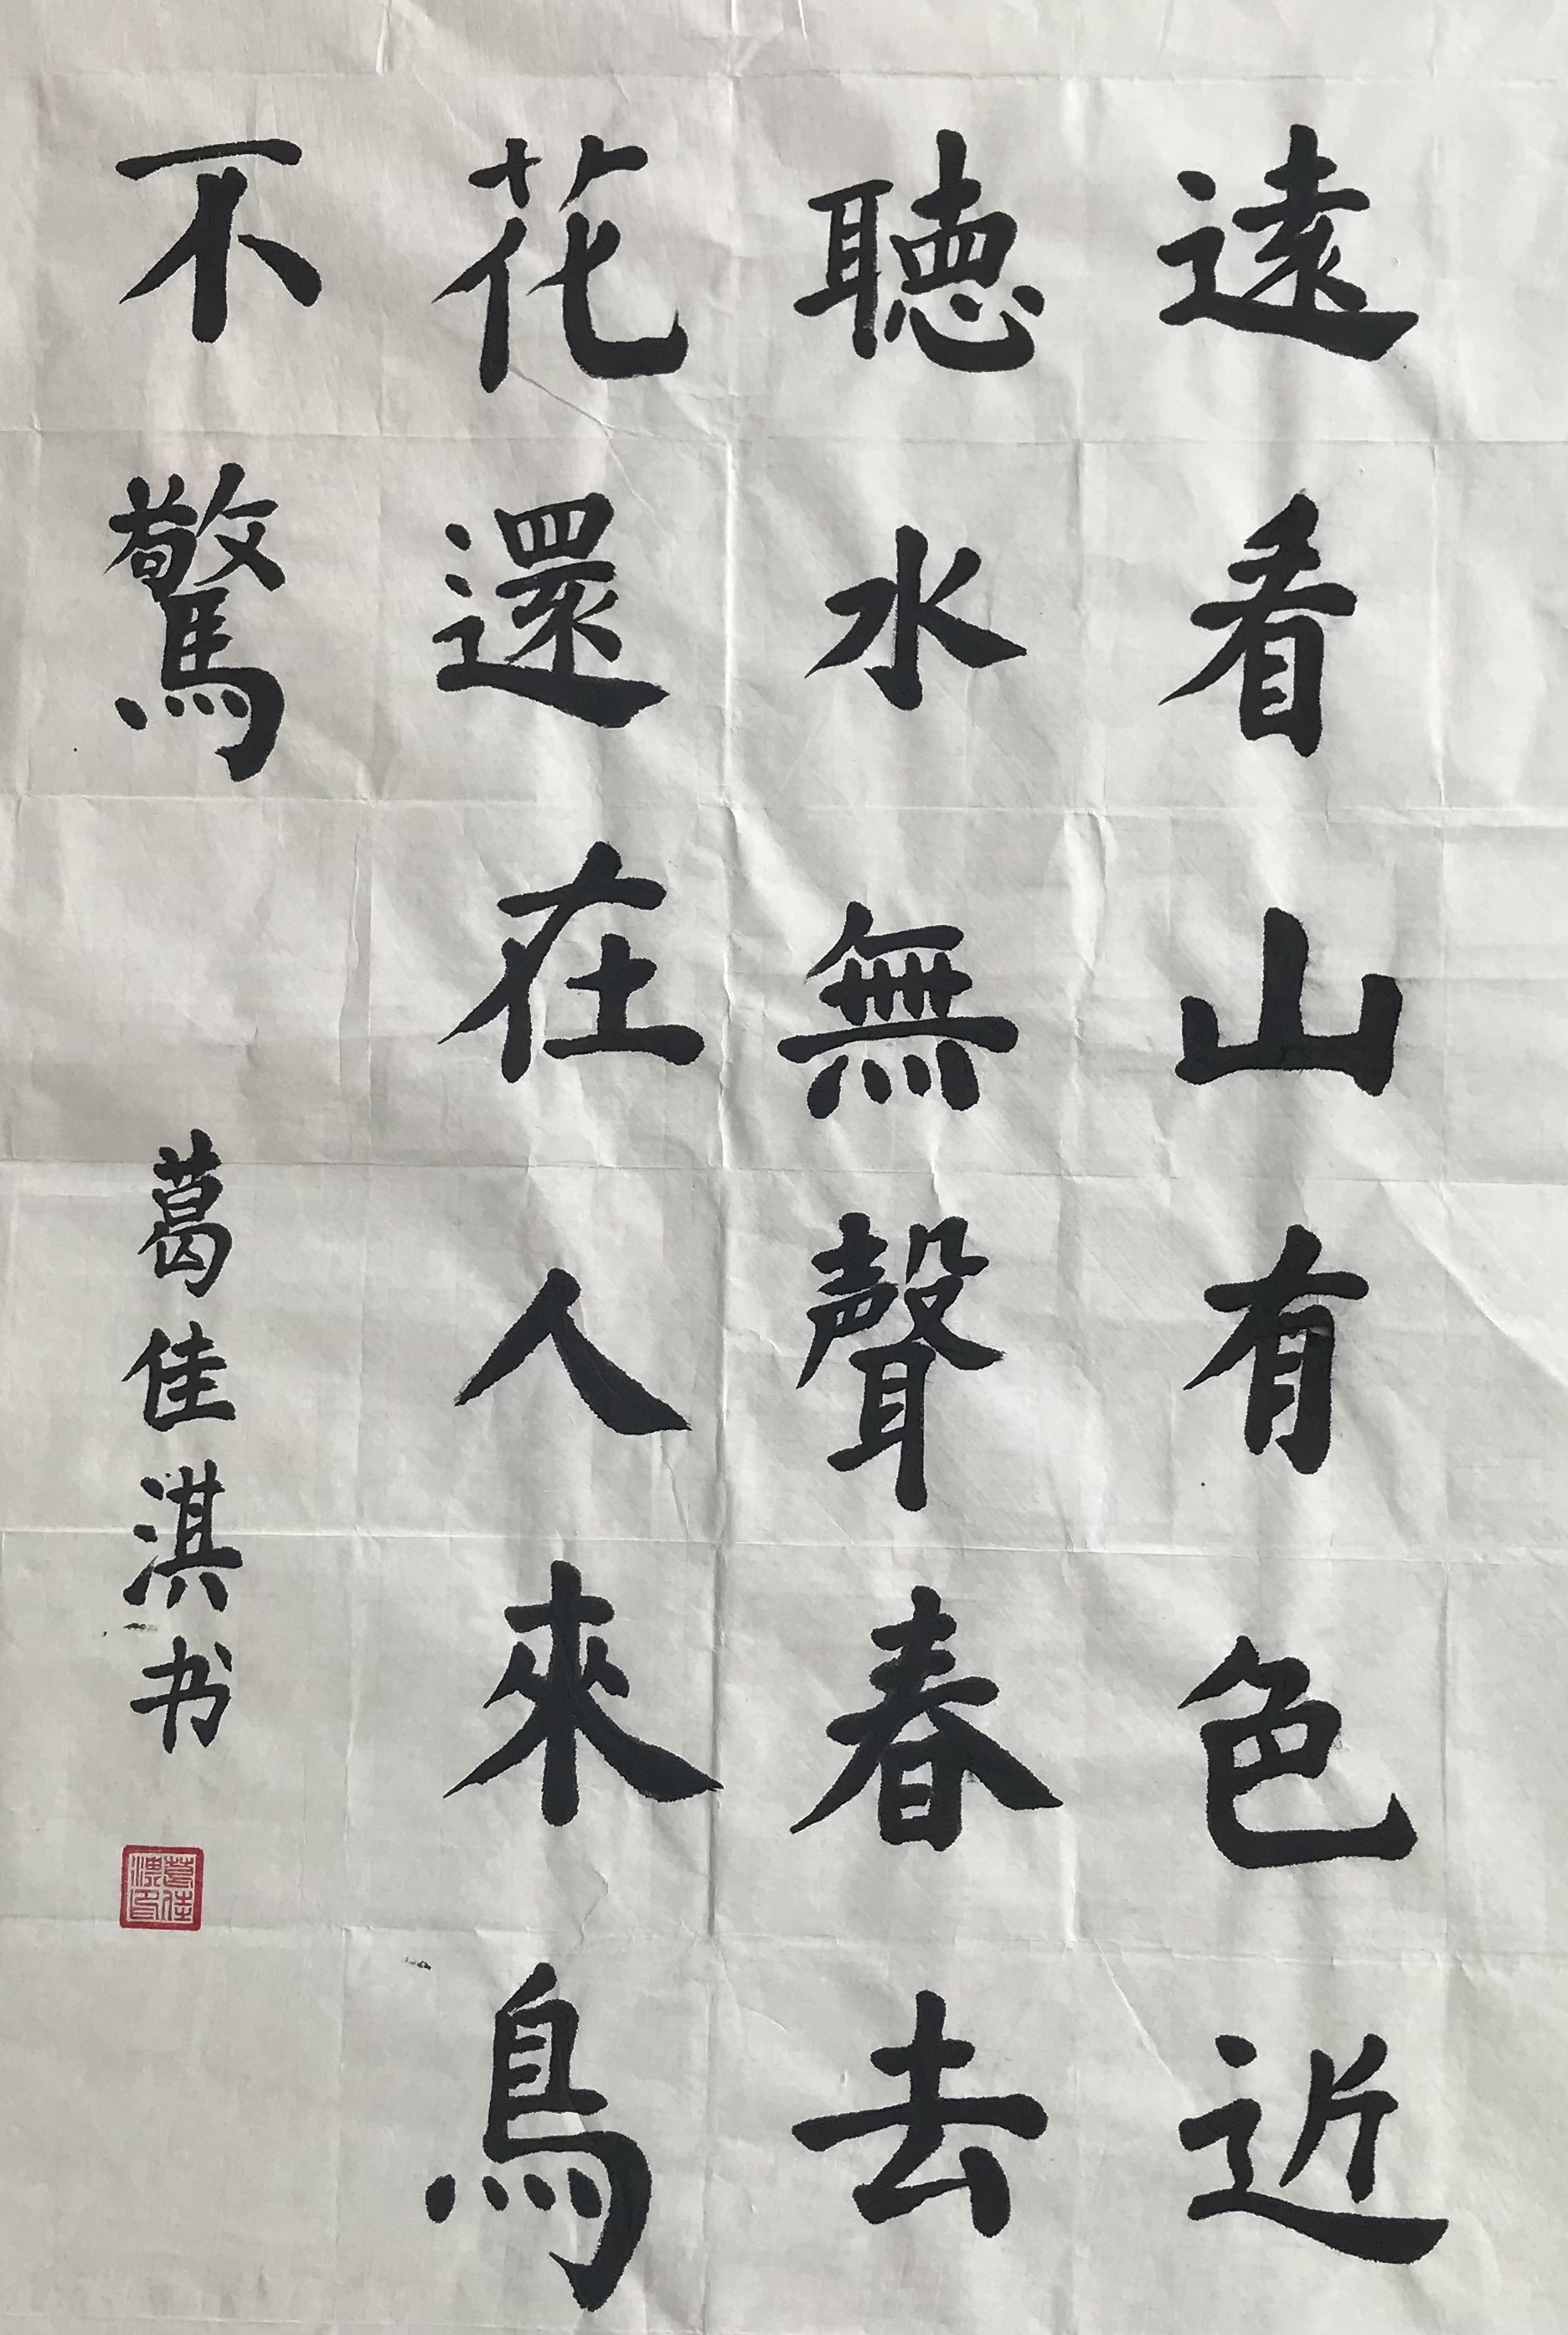 遠看山有色近
聽水無聲春去
花還在人來鳥
不驚
葛佳淇书
葛佳淇印